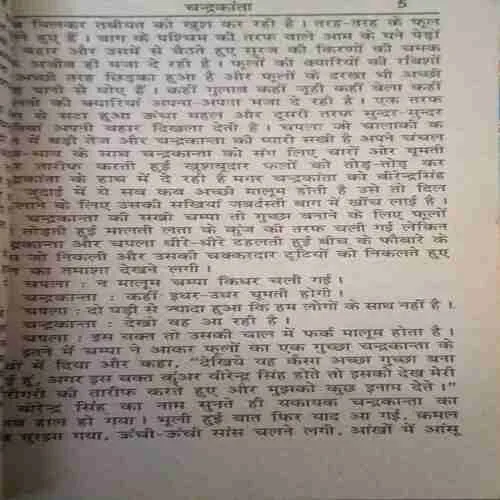 चन्द्रकांता 5
खिलकर तबीयत को खुश कर रही है । तरह-तरह के फूल
हुए हैं । बाग के पश्चिम की तरफ वाले आम के घने पेड़ों
बहार और उसमें से बैठते हुए सूरज की किरणों की चमक
अजीब ही मजा दे रही है । फूलों की क्यारियों की रविशों
अच्छी तरह छिड़का हुआ है और फूलों के दरख्त भी अच्छी
पानी से धोए हैं । कहीं गुलाब कहीं जूही कहीं बेला कहीं
की क्यारियां अपना-अपना मजा दे रही है । एक तरफ
से सटा हुआ ऊंचा महल और दूसरी तरफ सुन्दर-सुन्दर
अपनी बहार दिखला देती है । चपला जो चालाकी के
में बड़ी तेज और चन्द्रकान्ता की प्यारी सखी है अपने चंचल
-भाव के साथ चन्द्रकान्ता को संग लिए चारों ओर घूमती
तारीफ करती हुई खुशबूदार फूलों को तोड़-तोड़ कर
के हाथ में दे रही है मगर चन्द्रकांता को वीरेन्द्रसिंह
जुदाई में ये सब कब अच्छे मालूम होती है उसे तो दिल
के लिए उसकी सखियां जबर्दस्ती बाग में खींच लाई है ।
चन्द्रकांता की सखी चम्पा तो गुच्छा बनाने के लिए फूलों
तोड़ती हुई मालती लता के कुंज की तरफ चली गई लेकिन
और चपला धीरे-धीरे टहलती हुई बीच के फौवारे के
जा निकली और उसकी चक्करदार टूटियों को निकलते हुए
का तमाशा देखने लगी ।
चपला : न मालूम चम्पा किधर चली गई ।
चन्द्रकान्ता : कहीं इधर-उधर घूमती होगी ।
चपला : दो घड़ी से ज्यादा हुआ कि हम लोगों के साथ नहीं है ।
चन्द्रकान्ता : देखो वह आ रही है ।
चपला : इस वक्त तो उसकी चाल में फर्क मालूम होता है ।
इतने में चम्पा ने आकर फूलों का एक गुच्छा चन्द्रकान्ता के
में दिया और कहा, "देखिये यह कैसा अच्छा गुच्छा बना
हूं, अगर इस वक्त कुंअर वीरेन्द्र सिंह होते तो इसको देख मेरी
की तारीफ करते हुए और मुझको कुछ इनाम देते ।"
वीरेन्द्र सिंह का नाम सुनते ही यकायक चन्द्रकान्ता का
हाल हो गया । भूली हुई बात फिर याद आ गई, कमल
मुरझा गया, ऊंची-ऊंची सांस चलने लगी, आंखों में आंसू